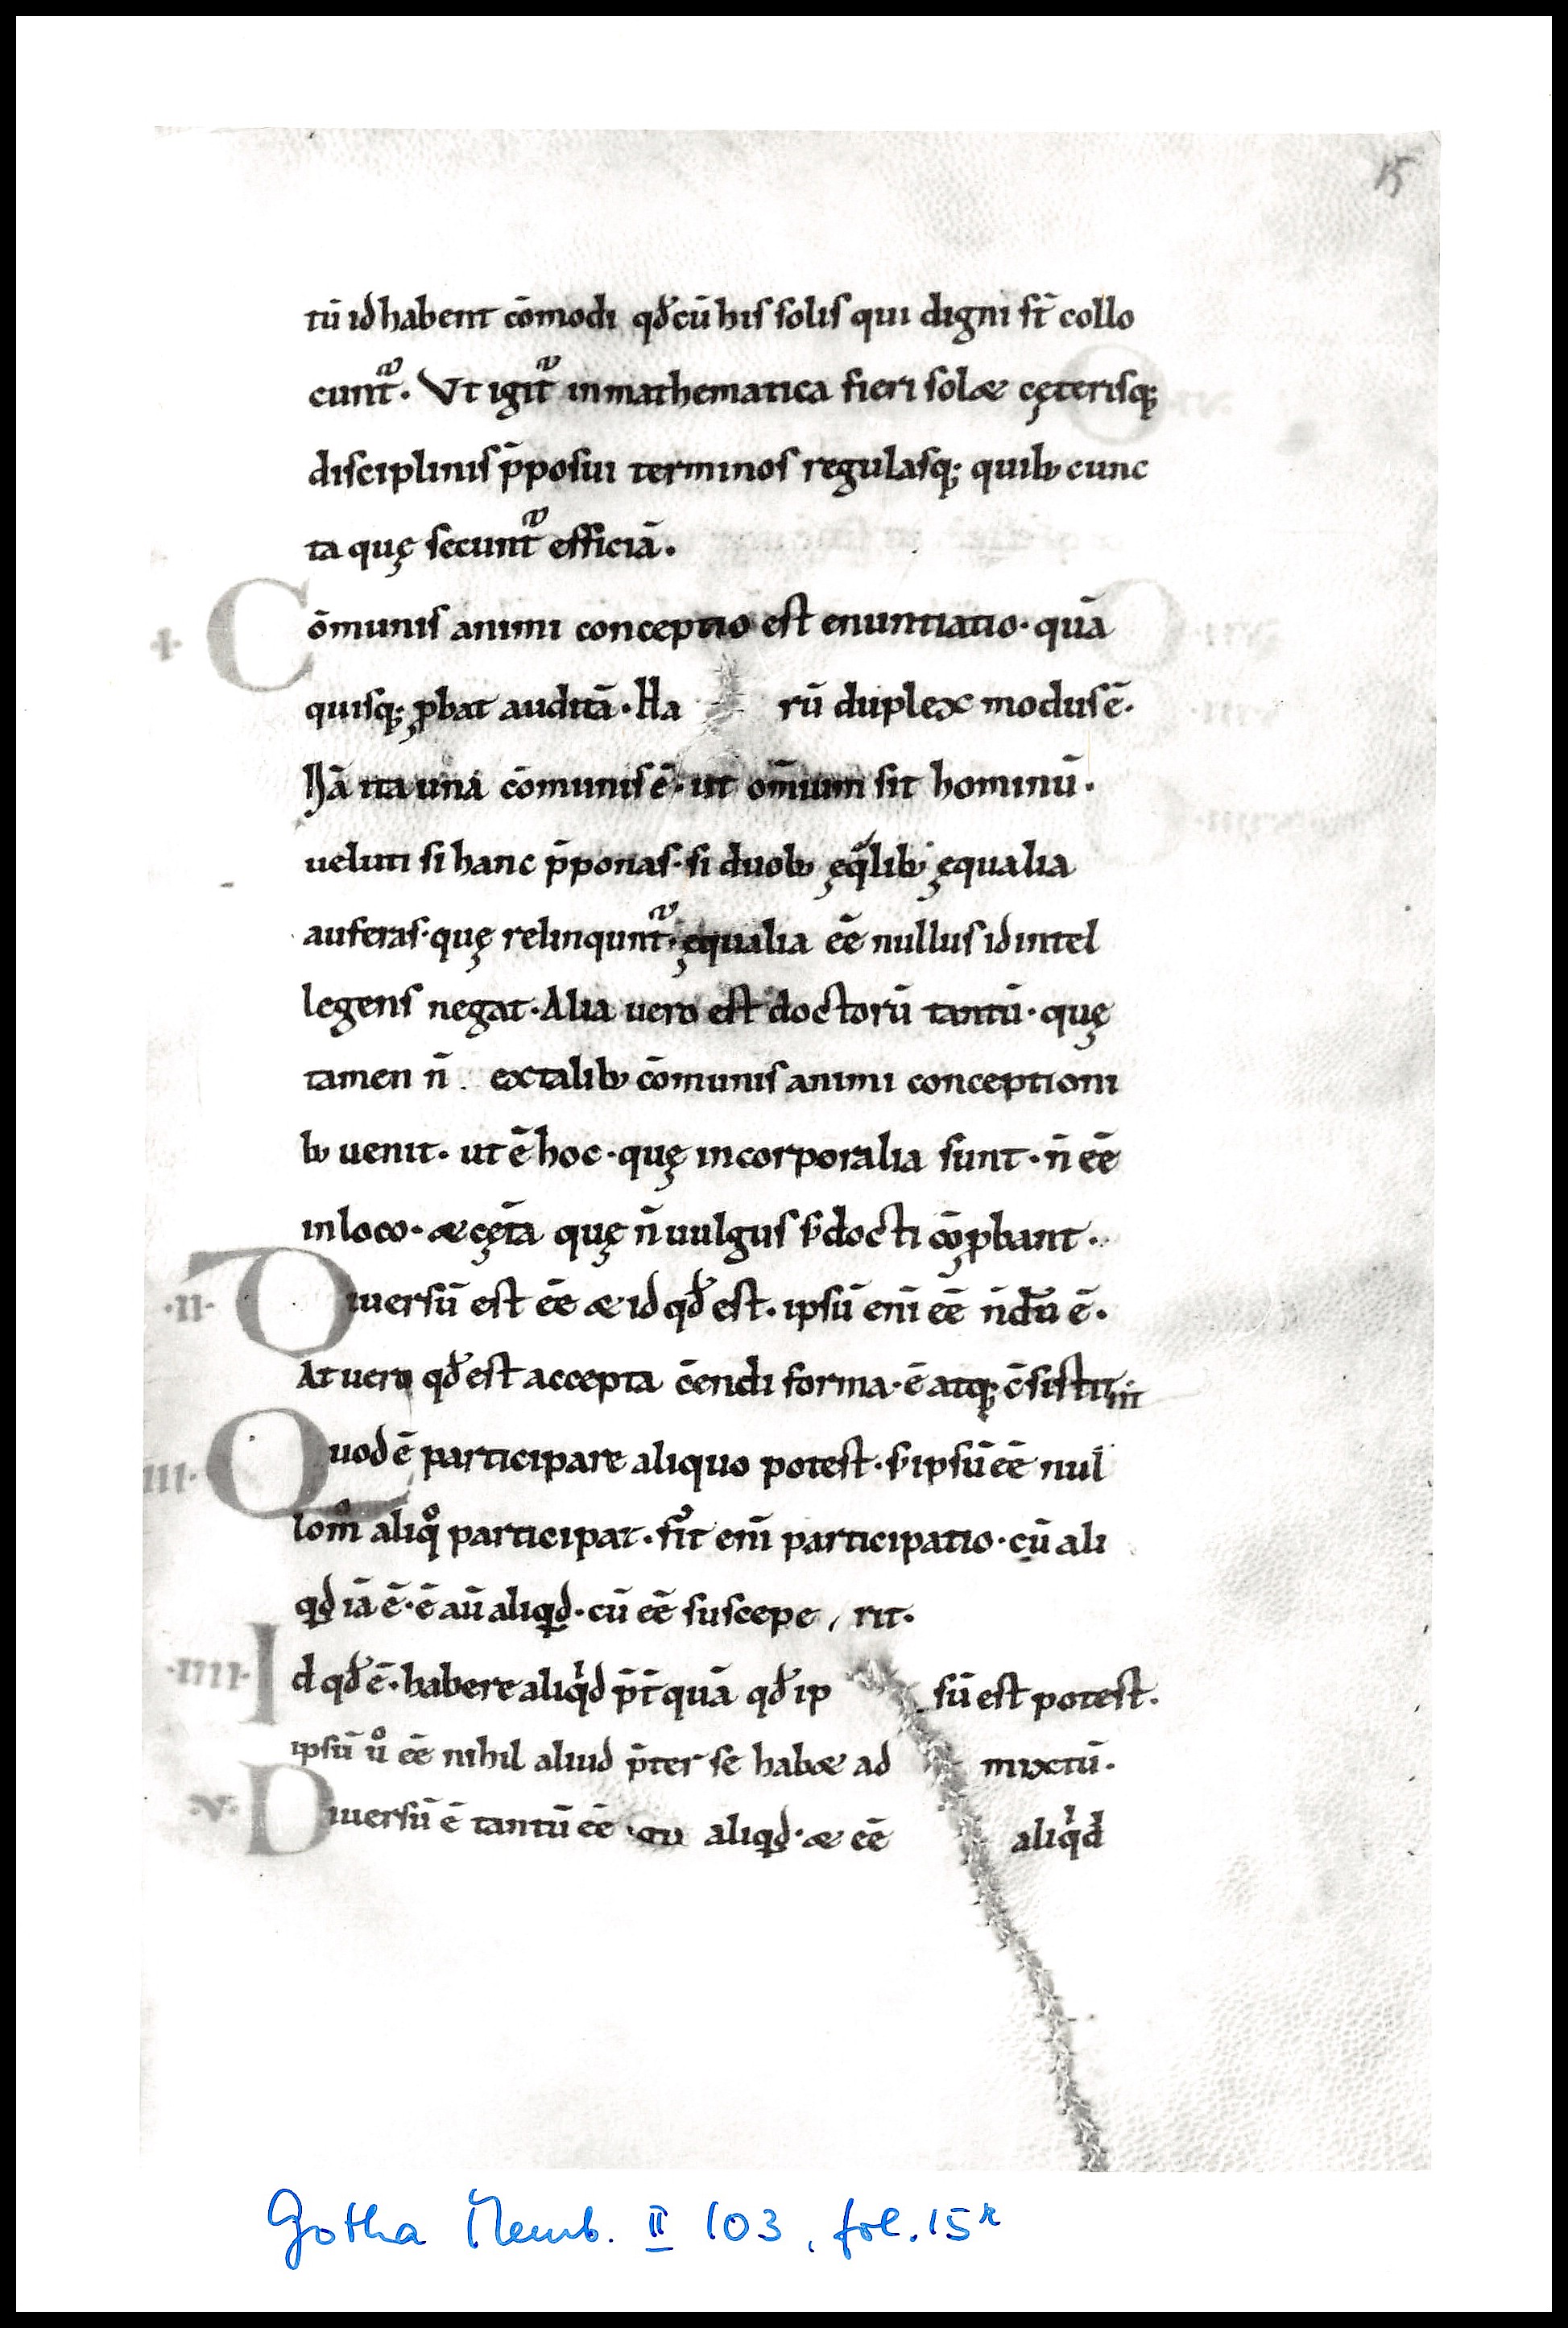 15
tū id habent cōmodi qd̄ cū his solis qui digni st̄ collo
cunt᷑. Vt igit᷑ in mathematica fieri sol& cęterisq;
disciplinis p̄posui terminos regulasq; quib; cunc
ta quę secunt᷑ efficiā.
·I· Cōmunis animi conceptio est enuntiatio· quā
quisq; ꝓbat auditā. Ha rū duplex modus ē.
Nā ita una cōmunis ē· ut om̄ium sit hominū.
ueluti si hanc p̄ponas· si duob; ęqͣlib; ęqualia
auferas· quę relinqunt᷑· ęqualia eē nullus id intel
legens negat. Alia uero est doctorū tantū· quę
tamen n̄ ex talib; cōmunis animi conceptioni
b; uenit. ut ē hoc· quę incorporalia sunt· n̄ eē
in loco· & cęt̄a quę n̄ uulgus s; docti cōꝓbant.
·II· Diuersū est eē & id qd̄ est. ipsū eni̅ eē n̄dū ē.
At uero qd̄ est accepta c̄endi forma· ē atq; c̄sistit
·III· Quod ē participare aliquo potest· s; ipsū eē nul
lom̊ aliqͦ participat. fit᷑ eni̅ participatio· cū ali
qd iā ē· ē aū aliqd· cū eē suscepe rit.
·IIII· Id qd̄ ē· habere aliqͥd p̄t̄ quā qd̄ ip sū est potest.
ipsū uͦ eē nihil aliud p̄ter se hab& ad mixtū.
·V· Diuersū ē tantū eē aliqd· & eē aliqͥd
Gotha Memb. II 103, fol. 15r